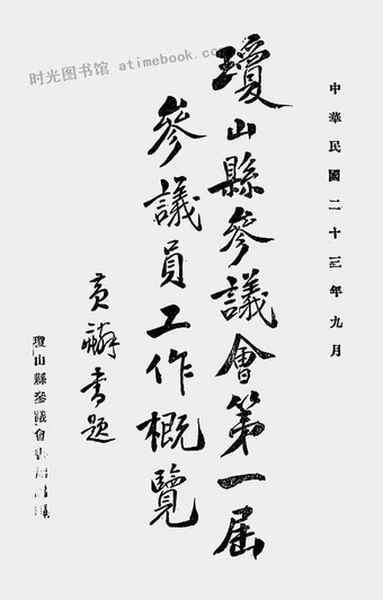 时光图书馆 atimebook.com
中華民國二十三年九月
瓊山縣參議會第一屆
參議員工作概覽
黃麟書題
瓊山縣參議會書